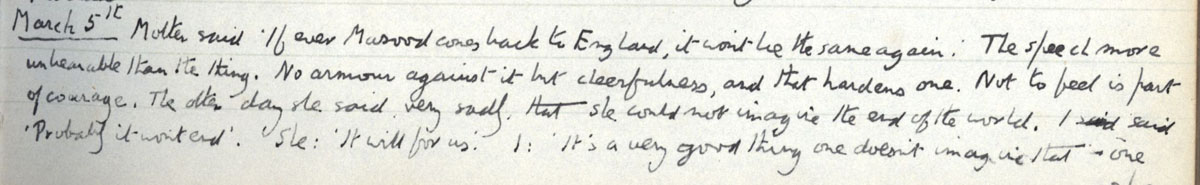 March 5th Mother said 'If ever Masood comes back to England, it won't be the same again.' The speech more
unbearable than the thing. No armour against it but cheerfulness, and that hardens one. Not to feel is part
of courage. The other day she said, very sadly, that she could not imagine the end of the world. I said said
'Probably it wont end'. She: 'It will for us.' I: 'It's a very good thing one doesn't imagine that' - one